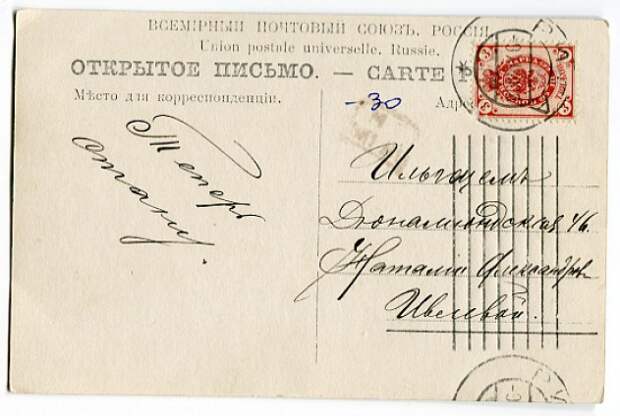 ВСЕМІРНЫЙ ПОЧТОВЫЙ СОЮЗЪ. РОССІЯ
Union postale universelle. Russie.
ОТКРЫТОЕ ПИСЬМО. — CARTE P
Мѣсто для корреспонденціи.
Адре
-30
Теперь
отвѣть.
Ильгецемъ
Дюнамюндская 46.
Наталіи Александров
Ивелевой.
3
3
3
3
РИ